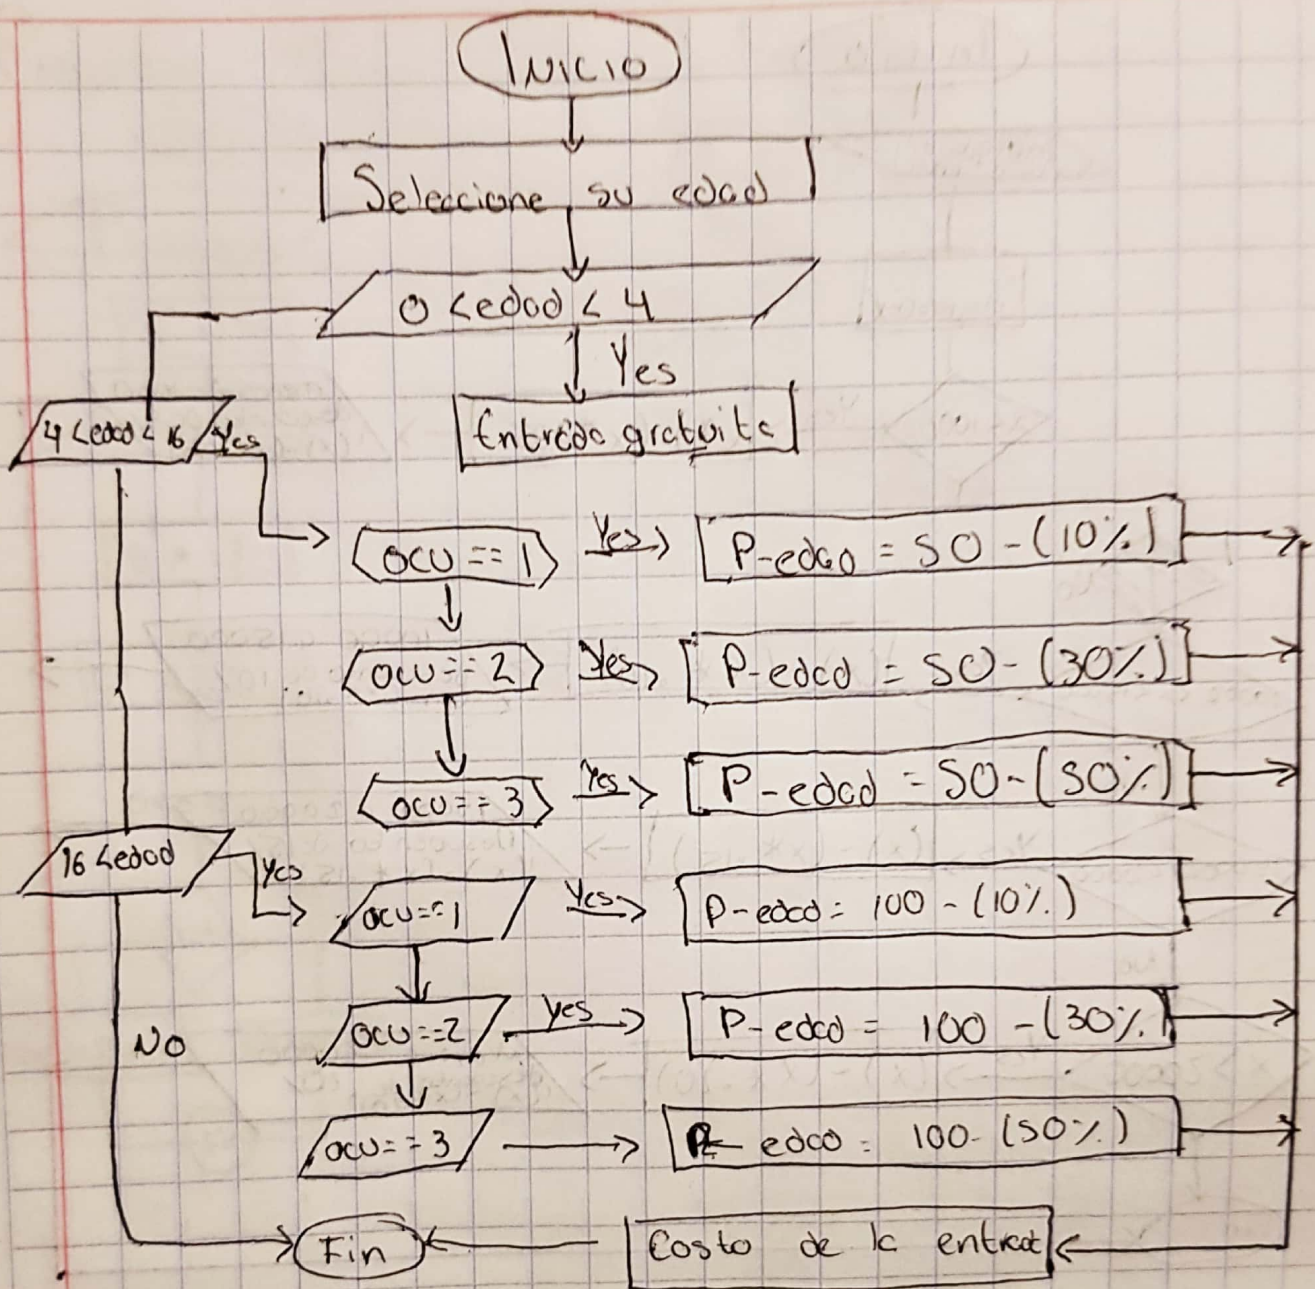 Inicio
Seleccione su edad
0 < edad < 4
Yes
4 < edad < 16
Yes
Entrada gratuita
ocu == 1
Yes
P-edad = 50 - (10%)
ocu == 2
Yes
P-edad = 50 - (30%)
ocu == 3
Yes
P-edad = 50 - (50%)
16 < edad
Yes
ocu == 1
Yes
P-edad = 100 - (10%)
ocu == 2
yes
P-edad = 100 - (30%)
NO
ocu == 3
edad = 100 - (50%)
Fin
Costo de la entrad